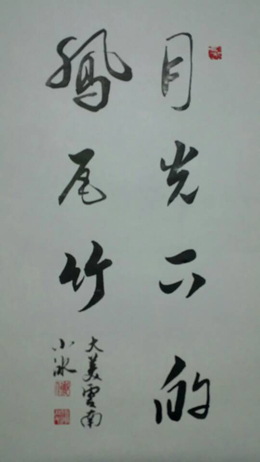 月光下的
鳳尾竹
大美雲南
小冰